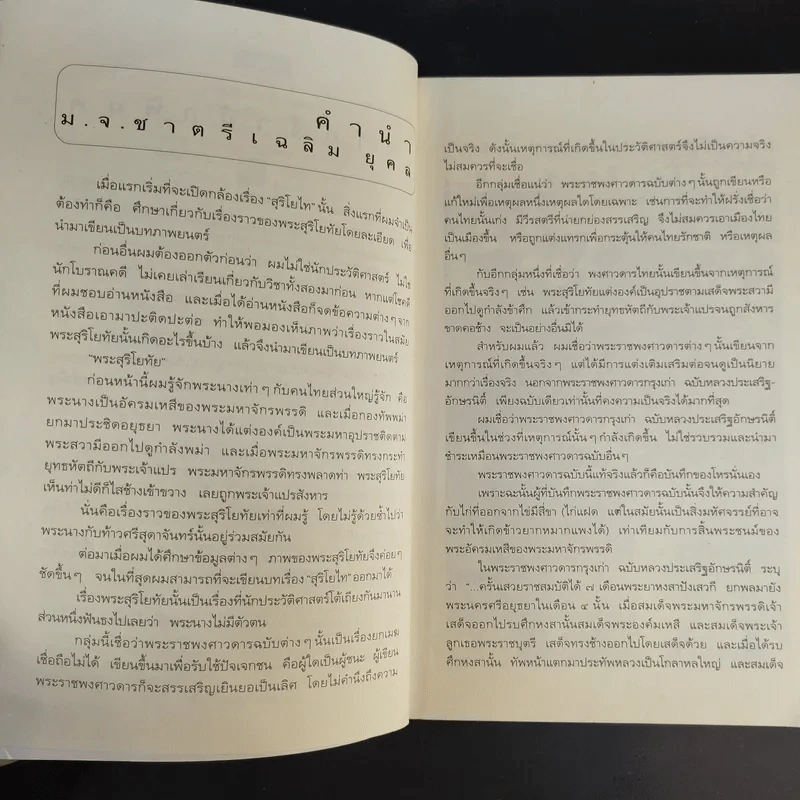 คำนำ
ม.จ.ชาตรีเฉลิม ยุคล
เมื่อแรกเริ่มที่จะเปิดกล้องเรื่อง "สุริโยไท" นั้น สิ่งแรกที่ผมจำเป็น
ต้องทำก็คือ ศึกษาเกี่ยวกับเรื่องราวของพระสุริโยทัยโดยละเอียด เพื่อ
นำมาเขียนเป็นบทภาพยนตร์
ก่อนอื่นผมต้องออกตัวก่อนว่า ผมไม่ใช่นักประวัติศาสตร์ ไม่ใช่
นักโบราณคดี ไม่เคยเล่าเรียนเกี่ยวกับวิชาทั้งสองมาก่อน หากแต่โชคดี
ที่ผมชอบอ่านหนังสือ และเมื่อได้อ่านหนังสือก็จดข้อความต่างๆ จาก
หนังสือเอามาปะติดปะต่อ ทำให้พอมองเห็นภาพว่าเรื่องราวในสมัย
พระสุริโยทัยนั้นเกิดอะไรขึ้นบ้าง แล้วจึงนำมาเขียนเป็นบทภาพยนตร์
"พระสุริโยทัย"
ก่อนหน้านี้ผมรู้จักพระนางเท่าๆ กับคนไทยส่วนใหญ่รู้จัก คือ
พระนางเป็นอัครมเหสีของพระมหาจักรพรรดิ และเมื่อกองทัพพม่า
ยกมาประชิดอยุธยา พระนางได้แต่งองค์เป็นพระมหาอุปราชติดตาม
พระสวามีออกไปดูกำลังพม่า และเมื่อพระมหาจักรพรรดิทรงกระทำ
ยุทธหัตถีกับพระเจ้าแปร พระมหาจักรพรรดิทรงพลาดท่า พระสุริโยทัย
เห็นท่าไม่ดีก็ไสช้างเข้าขวาง เลยถูกพระเจ้าแปรสังหาร
นั่นคือเรื่องราวของพระสุริโยทัยเท่าที่ผมรู้ โดยไม่รู้ด้วยซ้ำไปว่า
พระนางกับท้าวศรีสุดาจันทร์นั้นอยู่ร่วมสมัยกัน
ต่อมาเมื่อผมได้ศึกษาข้อมูลต่างๆ ภาพของพระสุริโยทัยจึงค่อยๆ
ชัดขึ้นๆ จนในที่สุดผมสามารถที่จะเขียนบทเรื่อง "สุริโยไท" ออกมาได้
เรื่องพระสุริโยทัยนั้นเป็นเรื่องที่นักประวัติศาสตร์โต้เถียงกันมานาน
ส่วนหนึ่งฟันธงไปเลยว่า พระนางไม่มีตัวตน
กลุ่มนี้เชื่อว่าพระราชพงศาวดารฉบับต่างๆ นั้นเป็นเรื่องยกเมฆ
เชื่อถือไม่ได้ เขียนขึ้นมาเพื่อรับใช้ปัจเจกชน คือผู้ใดเป็นผู้ชนะ ผู้เขียน
พระราชพงศาวดารก็จะสรรเสริญเยินยอเป็นเลิศ โดยไม่คำนึงถึงความ
เป็นจริง ดังนั้นเหตุการณ์ที่เกิดขึ้นในประวัติศาสตร์จึงไม่เป็นความจริง
ไม่สมควรที่จะเชื่อ
อีกกลุ่มเชื่อแน่ว่า พระราชพงศาวดารฉบับต่างๆ นั้นถูกเขียนหรือ
แก้ใหม่เพื่อเหตุผลหนึ่งเหตุผลใดโดยเฉพาะ เช่นการที่จะทำให้ฝรั่งเชื่อว่า
คนไทยนั้นเก่ง มีวีรสตรีที่น่ายกย่องสรรเสริญ จึงไม่สมควรเอาเมืองไทย
เป็นเมืองขึ้น หรือถูกแต่งแทรกเพื่อกระตุ้นให้คนไทยรักชาติ หรือเหตุผล
อื่นๆ
กับอีกกลุ่มหนึ่งที่เชื่อว่า พงศาวดารไทยนั้นเขียนขึ้นจากเหตุการณ์
ที่เกิดขึ้นจริงๆ เช่น พระสุริโยทัยแต่งองค์เป็นอุปราชตามเสด็จพระสวามี
ออกไปดูกำลังข้าศึก แล้วเข้ากระทำยุทธหัตถีกับพระเจ้าแปรจนถูกสังหาร
ขาดคอช้าง จะเป็นอย่างอื่นมิได้
สำหรับผมแล้ว ผมเชื่อว่าพระราชพงศาวดารต่างๆ นั้นเขียนจาก
เหตุการณ์ที่เกิดขึ้นจริงๆ แต่ได้มีการแต่งเติมเสริมต่อจนดูเป็นนิยาย
มากกว่าเรื่องจริง นอกจากพระราชพงศาวดารกรุงเก่า ฉบับหลวงประเสริฐ-
อักษรนิติ์ เพียงฉบับเดียวเท่านั้นที่คงความเป็นจริงได้มากที่สุด
ผมเชื่อว่าพระราชพงศาวดารกรุงเก่า ฉบับหลวงประเสริฐอักษรนิติ์
เขียนขึ้นในช่วงที่เหตุการณ์นั้นๆ กำลังเกิดขึ้น ไม่ใช่รวบรวมและนำมา
ชำระเหมือนพระราชพงศาวดารฉบับอื่นๆ
พระราชพงศาวดารฉบับนี้แท้จริงแล้วก็คือบันทึกของโหรนั่นเอง
เพราะฉะนั้นผู้ที่บันทึกพระราชพงศาวดารฉบับนั้นจึงให้ความสำคัญ
กับไก่ที่ออกจากไข่มีสี่ขา (ไก่แฝด แต่ในสมัยนั้นเป็นสิ่งมหัศจรรย์ที่อาจ
จะทำให้เกิดข้าวยากหมากแพงได้) เท่าเทียมกับการสิ้นพระชนม์ของ
พระอัครมเหสีของพระมหาจักรพรรดิ
ในพระราชพงศาวดารกรุงเก่า ฉบับหลวงประเสริฐอักษรนิติ์ ระบุ
ว่า "...ครั้นเสวยราชสมบัติได้ ๗ เดือนพระยาหงสาปังเสวกี ยกพลมายัง
พระนครศรีอยุธยาในเดือน ๔ นั้น เมื่อสมเด็จพระมหาจักรพรรดิเจ้า
เสด็จออกไปรบศึกหงสานั้นสมเด็จพระองค์มเหสี และสมเด็จพระเจ้า
ลูกเธอพระราชบุตรี เสด็จทรงช้างออกไปโดยเสด็จด้วย และเมื่อได้รบ
ศึกหงสานั้น ทัพหน้าแตกมาประทัพหลวงเป็นโกลาหลใหญ่ และสมเด็จ